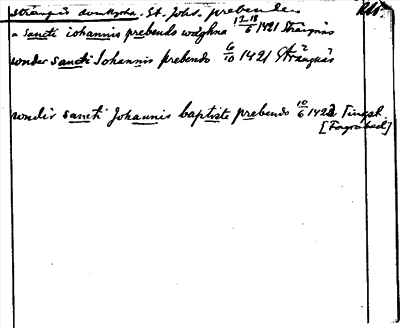 Strängnäs domkyrka. St. Joh:s prebende
a sancti iohannis prebendo wæghna 12-18/6 1421 Strängnäs
wnder sancti Iohannis prebendo 6/10 1421 Strängnäs
wndir sancti Johannis baptiste prebendo 10/6 1422 Tingst.
[Fogroback]